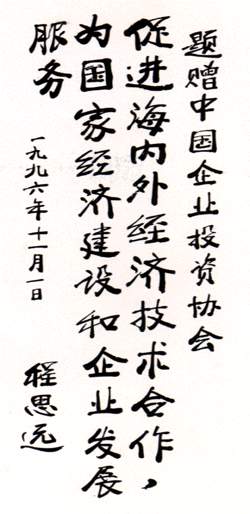 题赠中国企业投资协会
促进海内外经济技术合作，
为国家经济建设和企业发展
服务
一九九六年十一月一日
程思远